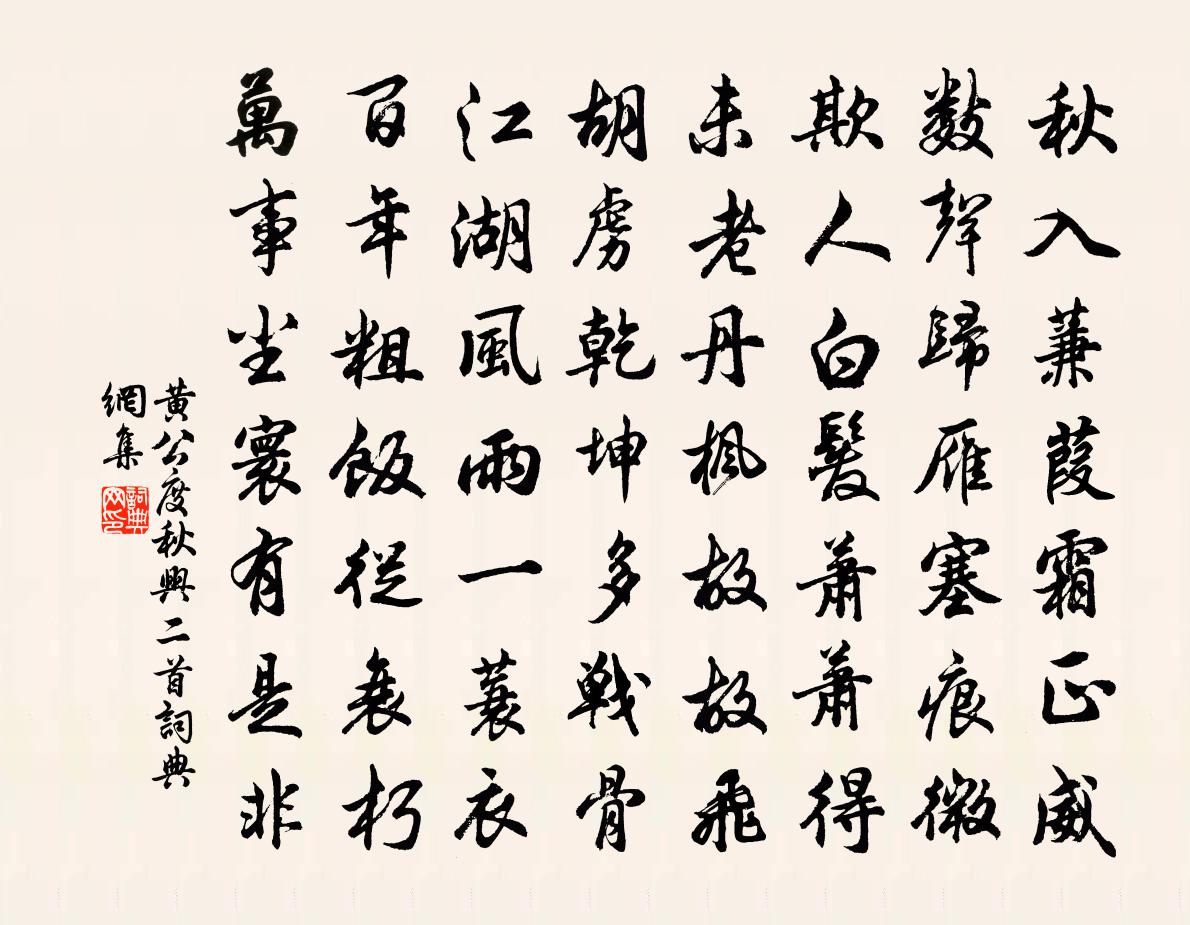 秋入蒹葭霜正威
數聲歸雁塞痕微
欺人白髮蕭蕭得
未老丹楓故故飛
胡虜乾坤多戰骨
江湖風雨一蓑衣
百年粗飯從衰朽
萬事尘寰有是非
黃公度秋興二首詞典
網集
詞典
网印